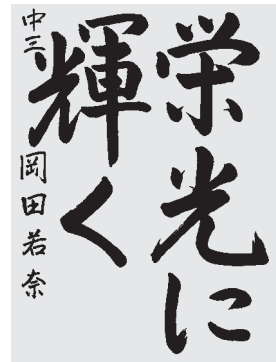 栄光に
輝く
中三 岡田若奈